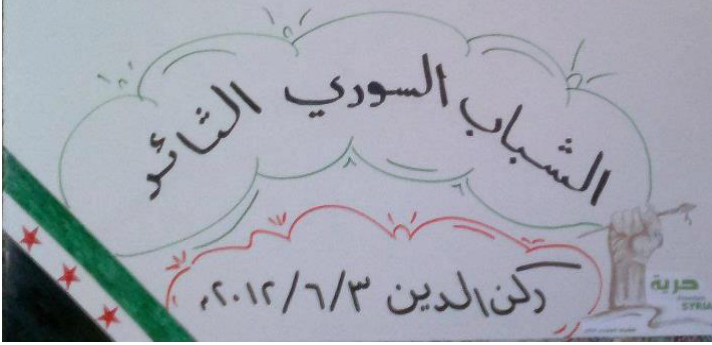 الشباب السوري الثائر
ركن الدين ٢٠١٢/٦/٣م
حرية
SYRIA